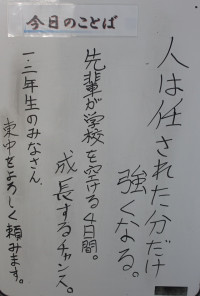 今日のことば
人は任された分だけ
強くなる。
先輩が学校を空ける4日間。
成長するチャンス。
一・二年生のみなさん、
東中をよろしく頼みます。